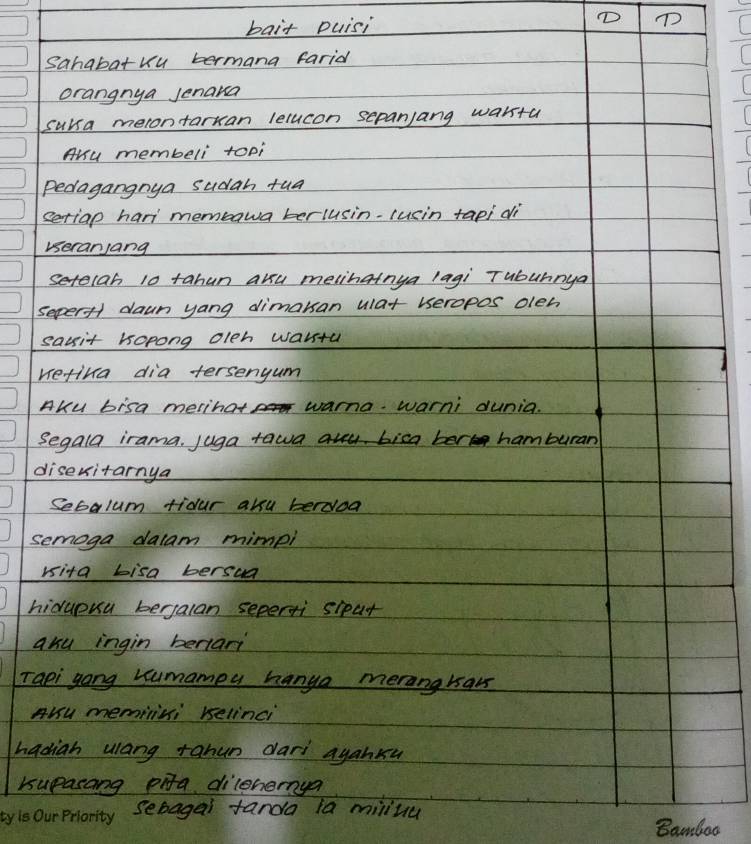 bait puisi D D
Sahabatku bermana farid
orangnya Jenaka
suka melontarkan lelucon sepanjang waktu
Aku membeli topi
Pedagangnya sudah tua
setiap hari membawa berlusin-lusin tapi di
keranjang
setelah 10 tahun aku melihatnya lagi Tubuhnya
seperti daun yang dimakan ulat keropos oleh
sakit kopong oleh waktu
ketika dia tersenyum
Aku bisa melihat warna-warni dunia.
segala irama. Juga tawa aku. bisa ber hamburan
disekitarnya
Sebalum tidur aku berdoa
semoga dalam mimpi
kita bisa bersua
hidupku berjalan seperti siput
aku ingin berlari
Tapi yang kumampu hanya merangkak
Aku memiliki kelinci
hadiah ulang tahun dari ayahku
kupasang pita dilehernya
sebagai tanda ia miliku
ty is Our Priority
Bamboo